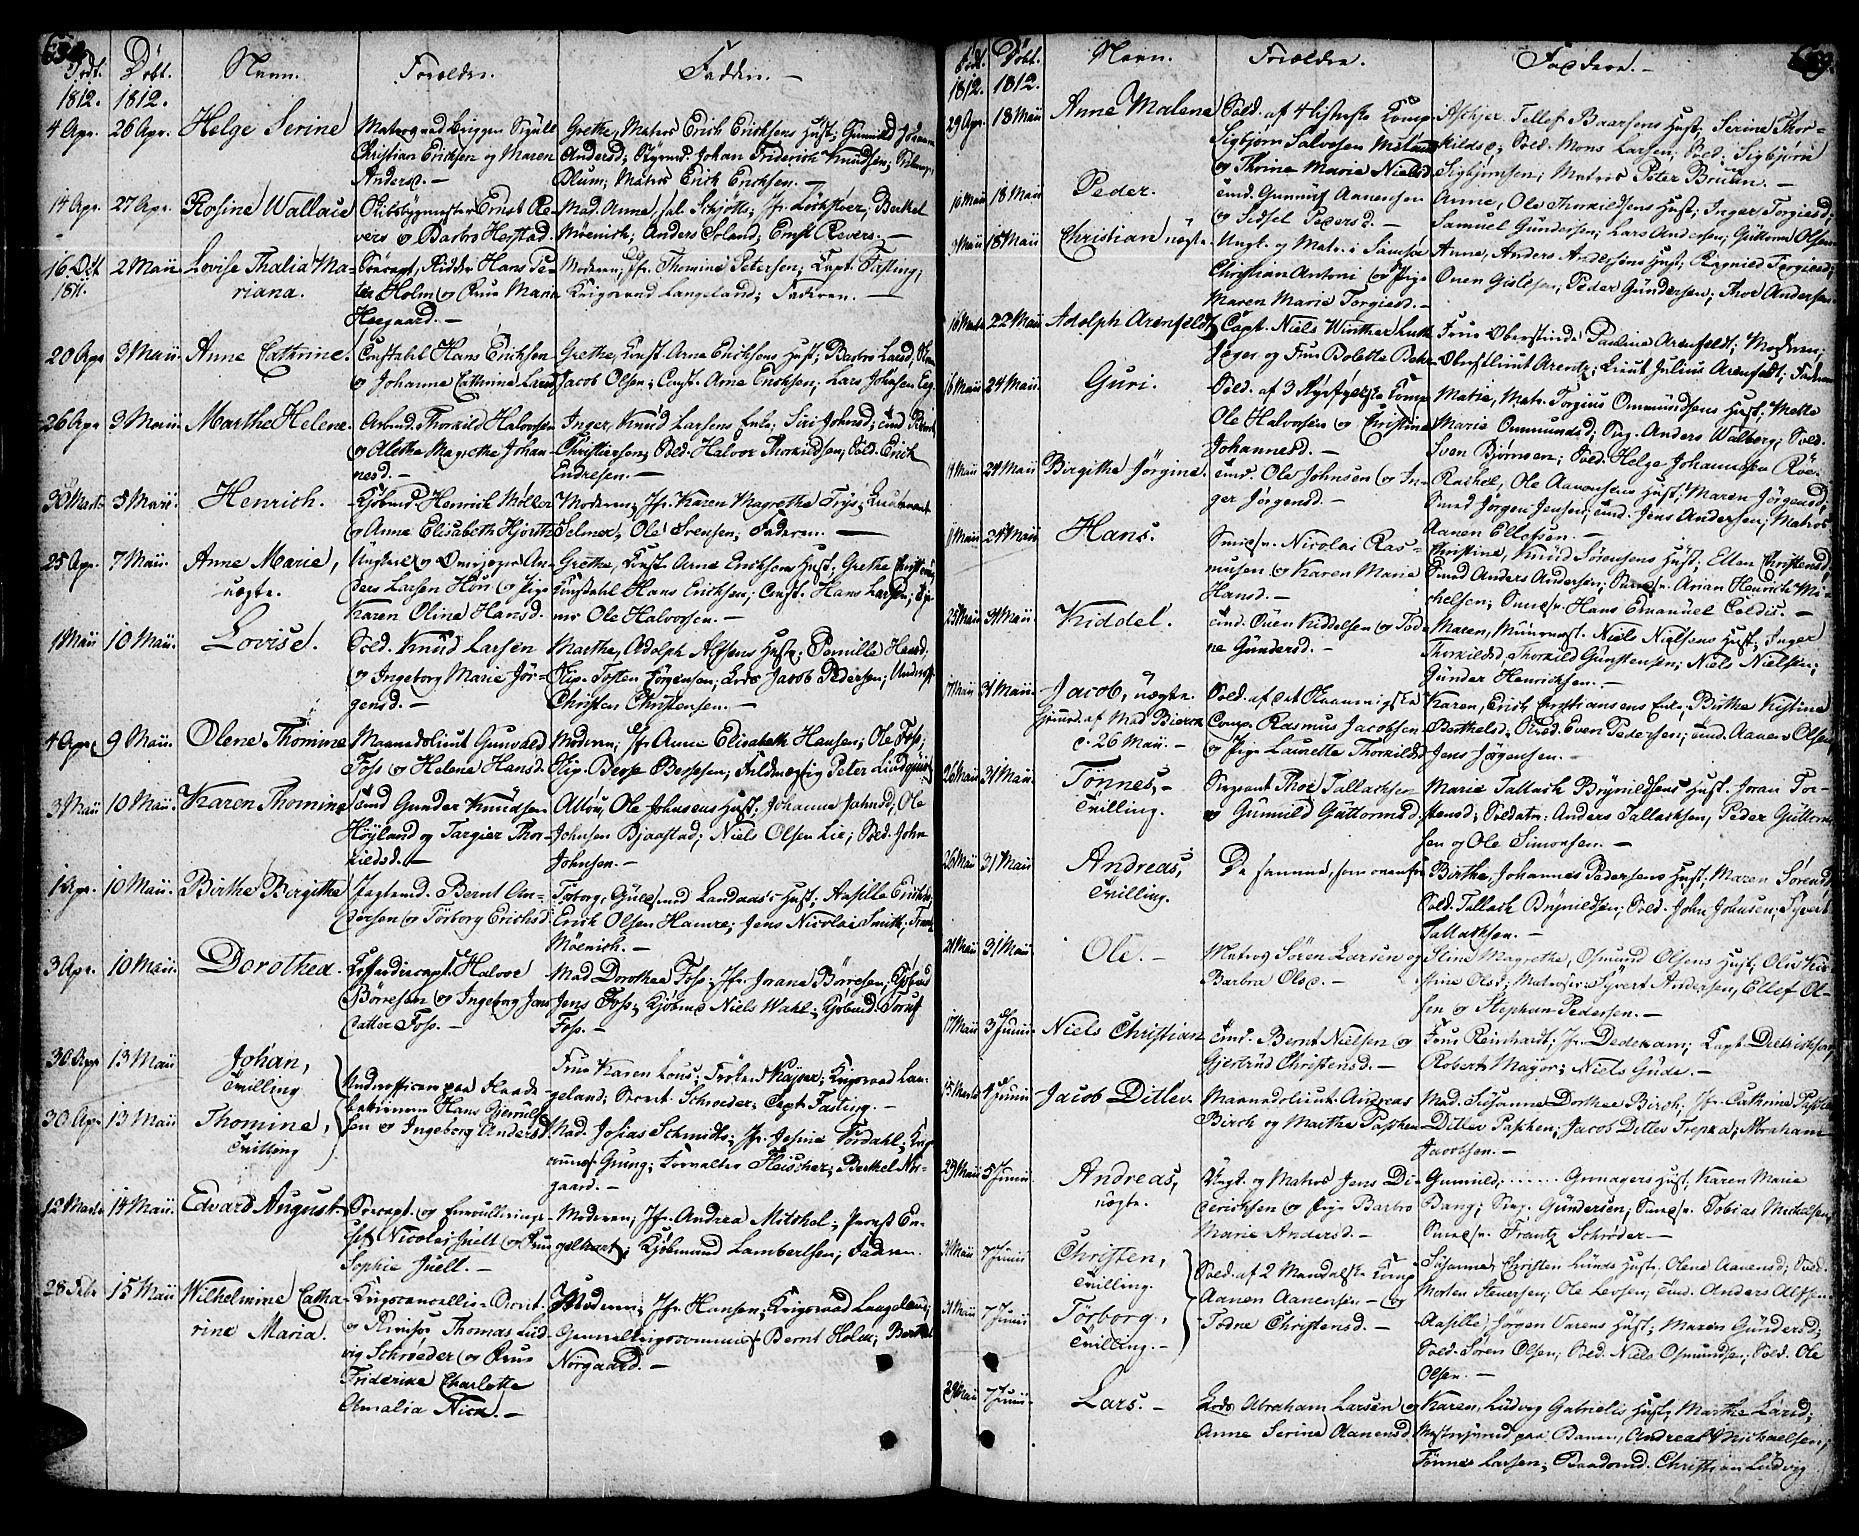 Født. Døbt. Navn. Forældre. Faddere. —
1812. 1812.
4 Apr. 26 Apr. Helge Serine
Christian Ericksen og Maren
Andersd. —
Grethe, Matros Erich Ericksens Hust;
Andersd; Styrmd Johan Friderich Knudsen;
Blum; Matros Erich Ericksen. —
14 Apr. 27 Apr. Rosine Wallace
Skibsbygmester Ernst Re-
vers og Barbro Herstad.
Mad. Anne, sal. Schjötts; Jfr. Berthel
Möenich; Anders Ernst Revers. —
16. Oct. 2 Maii Lovise Thalia Ma-
1811. riana.
Ridder Hans Pe-
ter Holm og Frue Maria
Heegaard. —
Moderen; Jfr. Thomine Petersen; Capt. Fasting;
Krigsraad Langeland; Faderen. —
20 Apr 3 Maii Anne Cathrine.
Constabl Hans Ericksen
og Johanne Cathrine Larsd
Grethe, Const. Arne Ericksens Hust; Barbro Larsd;
Jacob Olsen; Const. Arne Ericksen; Lars Johnsen
26 Apr 3 Maii Marthe Helene.
Arbmd. Thorkild Halvorsen
og Alethe Magrethe Johan-
nesd. —
Inger, Knud Larsens Enke; Siri Johnsd;
Christensen; Sold. Halvor Thorkildsen; Sold. Erich
Endresen. —
30 Marts 5 Maii Henrich.
Kjöbmd Henrich Möller
og Anne Elisabeth Hjorth
Moderen; Jfr. Karen Magrethe Frys; Lieutenant
Selmer; Ole Svensen; Faderen. —
25 Apr. 7 Maii Anne Marie,
uægte.
ders Larsen og Pige
Karen Oline Hansd.
Grethe, Const. Arne Ericksens Hust; Grethe
Constabl Hans Ericksen; Const. Hans Larsen;
Ole Halvorsen. —
1 Maii 10 Maii Lovise.
Sold. Knud Larsen
og Ingeborg Marie Jör-
gensd. —
Marthe, Adolph Hust; Pernille Hansd.
Skip. Tosten Jörgensen; Lods Jacob Pedersen;
Christen Christensen. —
4 Apr. 9 Maii. Olene Thomine
Maanedslieut Gunvald
Foss og Helene Hansd.
Moderen; Jfr. Anne Elisabeth Hansen; Ole Foss;
Skip. Besse Bessesen; Peter Lindqvist
3 Maii 10 Maii. Karen Thomine
Tmd Gunder Knudsen
Höyland og Targier Thor-
kildsd. —
Ole Johnsens Hust; Johanne Johnsd; Ole
Johnsen Bjaastad; Niels Olsen Lie; Sold. John
Johnsen. —
1 Apr. 10 Maii. Birthe Birgithe
Bernt An-
dersen og Torborg Ericksd
Torborg, Landaas's Hust; Aasille Ericksd;
Erich Olsen Hamre; Jens Nicolai Smith;
Möenich. —
3 Apr. 10 Maii. Dorothea
Halvor
Börresen og Ingeborg
Cattor Foss. —
Mad Dorothea Foss; Jfr. Jorane Börresen;
Jens Foss; Kjöbmd Niels Wahl; Kjöbmd.
Foss. —
30 Apr 13 Maii Johan,
Tvilling
Hans
sen og Ingeborg Andersd
Frue Karen Lous; Fröken Kajser; Krigsraad Lan-
geland; Schroeder; Capt Fasting. —
30 Apr 13 Maii Thomine,
Tvilling
Mad. Josias Schmidts; Jfr. Jesine Tordahl;
Grung; Forvalter Fleischer; Berthel Nör-
gaard. —
12 Marts 14 Maii. Edvard August.
og Enroullerings-
chef Nicolai Juell og Frue
Sophie Juell. —
Moderen; Jfr. Andrea Mitchel; Provst En-
gelhart; Kjöbmand Lambertsen; Faderen.
28 Febr 15 Maii Wilhelmine Catha-
rine Maria.
og Revisor Thomas Lud-
vig Schroeder og Frue
Friderike Charlotte
Amalia Nick. —
Moderen; Jfr. Hansen; Krigsraad Langeland;
Bernt Holm; Berthel
Nörgaard. —
Födt. Döbt. Navn. Forældre. Faddere. —
1812. 1812.
29 Apr. 18 Maii Anne Malene
Sold. af 4 Listerske Comp
Sigbjörn Salvesen
og Thrine Marie Nielsd
Tellef Baarsens Hust; Serine Thor-
kildsd; Sold. Mons Larsen; Sold. Sigbjörn
Sigbjörnsen; Matros Peter Bruun. —
18 Maii Peder.
Gunnuf Aanensen
og Sidsel Pedersd. —
Anne, Ole Thorkildsens Hust; Inger Torgiesd;
Samuel Gundersen; Lars Andersen; Guttorm Olsen
18 Maii Christian uægte
Ungk. og Matr.
Christian Antoni og Pige
Maren Marie Torgiesd. —
Anne, Anders Andersens Hust; Ragnild Torgiesd;
Onen Gislesen; Peder Gundersen; Thor Andersen
22 Maii Adolph Arenfeldt
Capt. Niels Winther
Jæger og Frue Bolette
Frue Oberstinde Pauline Arenfeldt; Moderen;
Oberstlieut Arentz; Lieut Julius Arenfeldt; Faderen
16 Maii 24 Maii. Guri.
Ole Halvorsen og Christine
Johannesd. —
Matie, Matr. Torgius Ommundsens Hust; Mette
Marie Ommundsd; Serg. Anders Walberg; Sold.
Sven Björnsen; Sold. Helge Johannesen
24 Maii Birgithe Jörgine.
Ole Johnsen og In-
ger Jörgensd. —
Rachel, Ole Aanensens Hust; Maren Jörgensd;
Smed Jörgen Jensen; Jens Andersen; Matros
Aanen Ellefsen. —
24 Maii Hans.
Nicolai Ras-
musen og Karen Marie
Hansd. —
Christine, Knud Sörensens Hust; Ellen Christensd;
Smed Anders Andersen; Arian Henrich Mi-
chelsen; Hans Emanuel —
25 Maii 31 Maii. Kiddel.
Onen Kiddelsen og Tod-
ne Gundersd. —
Maren, Niels Nielsens Hust; Inger
Thorkildsd; Thorkild Gunstensen; Niels Nielsen;
Gunder Henricksen. —
31 Maii. Jacob, uægte.
Hjemd. af Mad Bierck
d. 26 Maii. —
Comp. Rasmus Jacobsen
og Pige Laurette Thorkildsd
Karen, Erich Christiansens Enke; Birthe Kistine
Berthelsd; Even Pedersen; Aanen Olsen;
Jens Jörgensen. —
26 Maii 31 Maii. Tönnes, —
Tvilling.
Sergeant Thor Tallacksen
og Gunuld Guttormsd
Marie Tallach Brynildsens Hust. Joran Tor-
stensd; Soldater: Anders Tallacksen, Peder Guttorm-
sen og Ole Simonsen. —
26 Maii 31 Maii. Andreas,
Tvilling.
De samme, som ovenfor
Birthe, Johannes Pedersens Hust; Maren Sörensd;
Sold. Tallach Brynildsen; Sold. John Johnsen; Syvert
Tallacksen. —
31 Maii. Ole. —
Matros Sören Larsen og
Barbro Olsd. —
Stine Magrethe, Osmund Olsens Hust; Kir-
stine Olsd; Matroser: Syvert Andersen, Ellef Ol-
sen og Stephan Pedersen. —
17 Maii 3 Junii Niels Christian
Bernt Nielsen og
Gjertrud Christensd. —
Frue Reinhardt; Jfr. Dedekam; Capt. Diderichsen;
Robert Mayor; Niels Gude. —
15 Marts 4 Junii Jacob Ditlev
Maanedslieut. Andreas
Birch og Marthe Paschen
Mad. Susanne Dorthea Birch; Jfr. Cathrine
Ditlev Paschen; Jacob Ditlev Trepka; Abraham
Jacobsen. —
29 Maii 5 Junii Andreas,
uægte.
Ungk. og Matros Jens Di-
dericksen og Pige Barbro
Marie Andersd. —
Gunnild, ...... Gronagers Hust; Karen Marie
Bang; Serg. Gundersen; Tobias Michelsen;
Frantz Schröder. —
31 Maii 7 Junii Christen,
Tvilling.
Sold. af 2 Mandalske Comp
Aanen Aanensen — og
Todne Christensd. —
Susanne, Christen Lunds Hust; Olene Aanensd; Sold.
Morten Stenersen; Ole Levsen; Anders
31 Maii 7 Junii Törborg,
Tvilling. —
Aasille, Jörgen Værens Hust; Maren Gundersd;
Sold. Sören Olsen; Sold. Niels Osmundsen; Sold. Ole
Olsen. —
29 Maii 7 Junii Lars. —
Lods Abraham Larsen og
Anne Serine Aanensd.
Karen, Ludvig Gabriels Hust; Marthe Larsd;
Andreas Michaelsen;
Tönnes Larsen; Baadsmd. Christian Ludvig